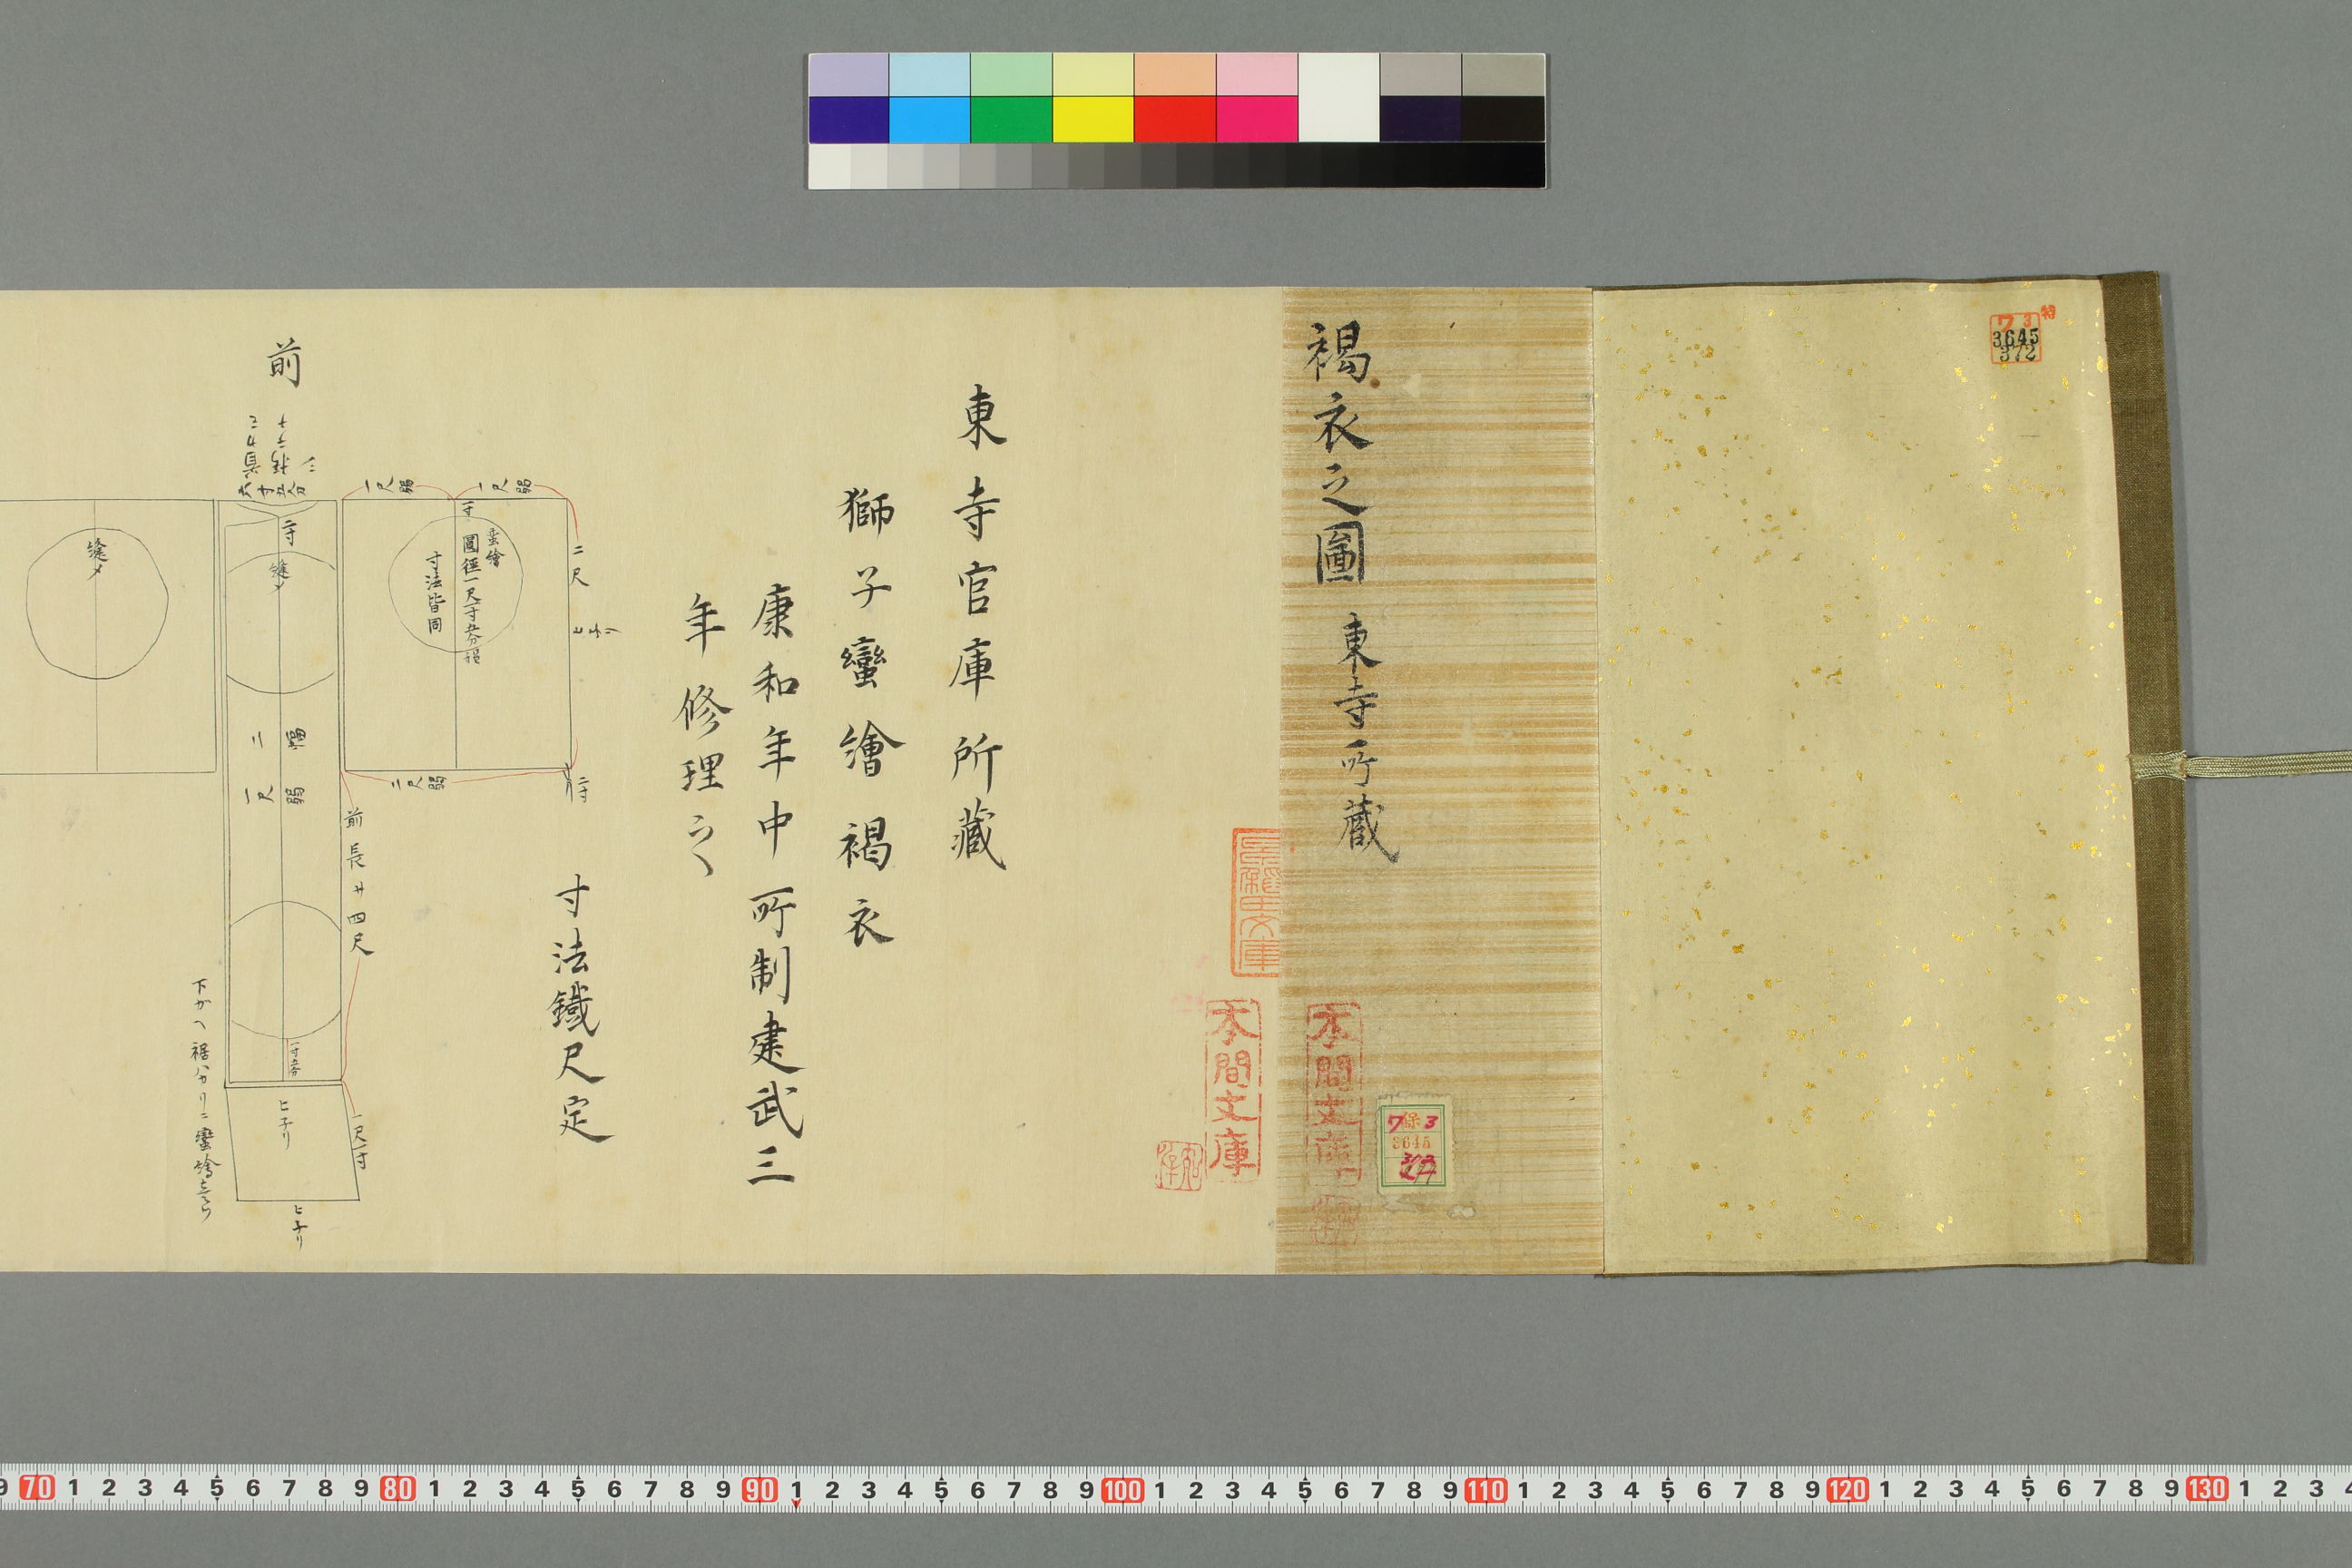 特
ワ 3
3645
372
褐衣之圖 東寺所蔵
本間文庫
ワ 特 3
3645
本間文庫
東寺官庫所藏
獅子蠻繪褐衣
康和年中所制建武三
年修理之
寸法鐵尺定
二尺
ヒチリ
一尺弱
一尺弱
一寸
蛮繪
圓徑一尺一寸五分損
寸法皆同
二寸
二尺弱
前長サ四尺
前
六寸五分
二寸
縫メ
二幅
一尺弱
一寸五分
ヒチリ
一尺一寸
ヒチリ
縫メ
9 70 1 2 3 4 5 6 7 8 9 80 1 2 3 4 5 6 7 8 9 90 1 2 3 4 5 6 7 8 9 100 1 2 3 4 5 6 7 8 9 110 1 2 3 4 5 6 7 8 9 120 1 2 3 4 5 6 7 8 9 130 1 2 3 4